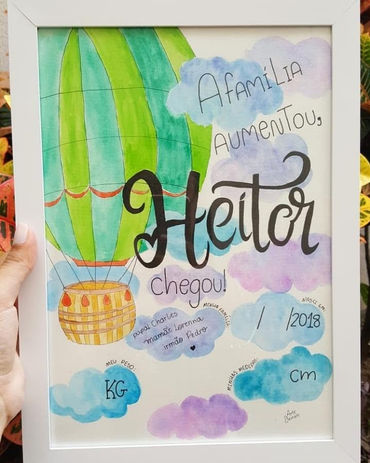 A FAMÍLIA
AUMENTOU,
Heitor
chegou!
MINHA FAMÍLIA
papai Charles
mamãe Lorenna
irmão Pedro
NASCI EM:
/ /2018
MEU PESO:
KG
MINHAS MEDIDAS:
cm